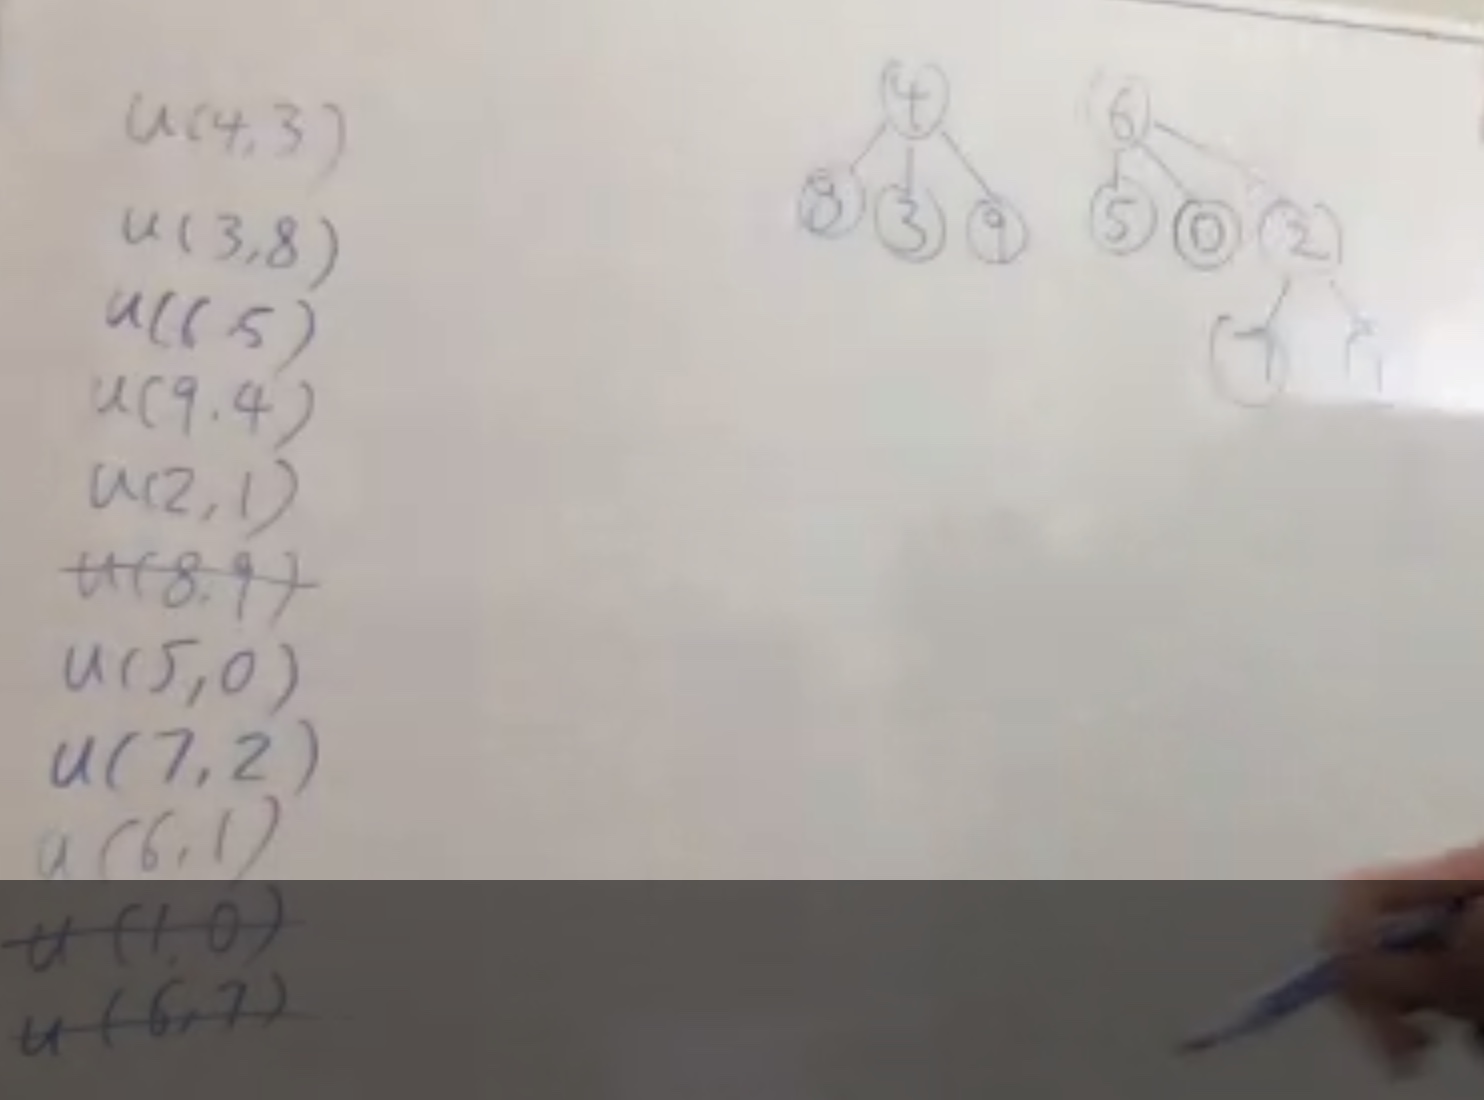 u(4,3)
u(3,8)
u(6 5)
u(9.4)
u(2,1)
u(8.9)
u(5,0)
u(7,2)
u(6,1)
u(1,0)
u(6,7)
4 6
8 3 9 5 0 2
7 1